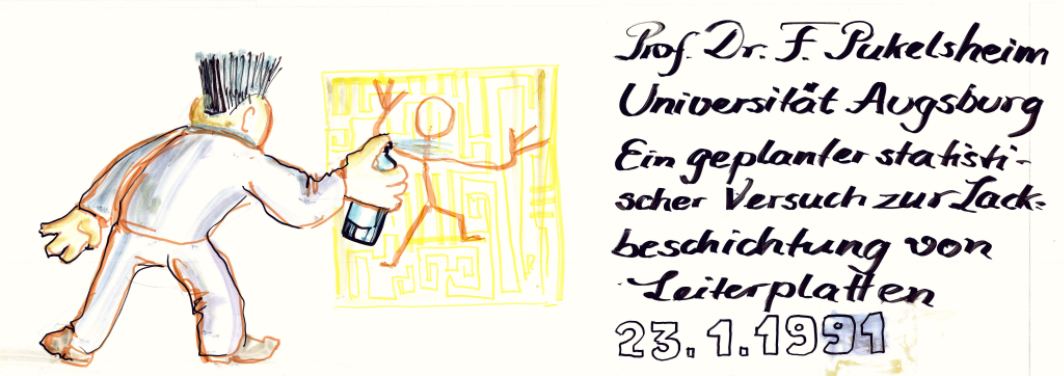 Prof. Dr. F. Pukelsheim
Universität Augsburg
Ein geplanter statisti-
scher Versuch zur Lack-
beschichtung von
Leiterplatten
23.1.1991